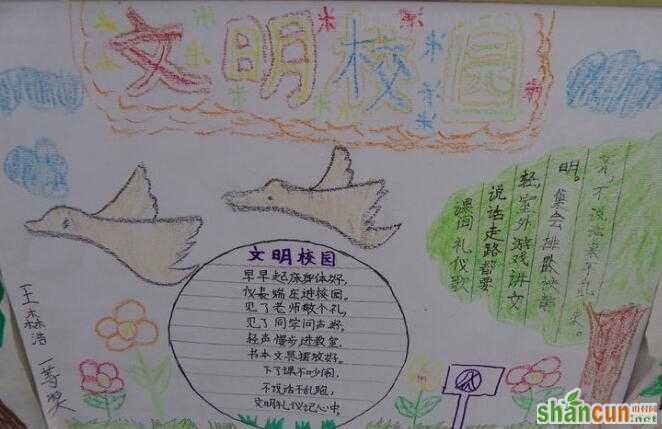 文明校园
文明校园
早早起床身体好,
仪表端庄进校园。
见了老师敬个礼,
见了同学问声好。
轻声慢步进教室,
书本文具摆放好。
下了课不吵闹,
不说话不乱跑,
文明礼仪记心中。
课间礼仪歌
说话走路都要
轻,室外游戏讲文
明。集会排队
不说话来不乱
王森浩
一等奖
shancun
山村网
.net